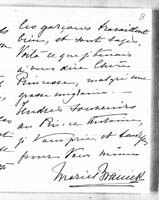 les garçons travaillent
bien, et sont sages.
Voilà ce que je tenais
à vous dire Chère
Princesse, malgré une
grosse migraine. —
Tendres souvenirs
au Prince Antoine,
et
pour Vous même